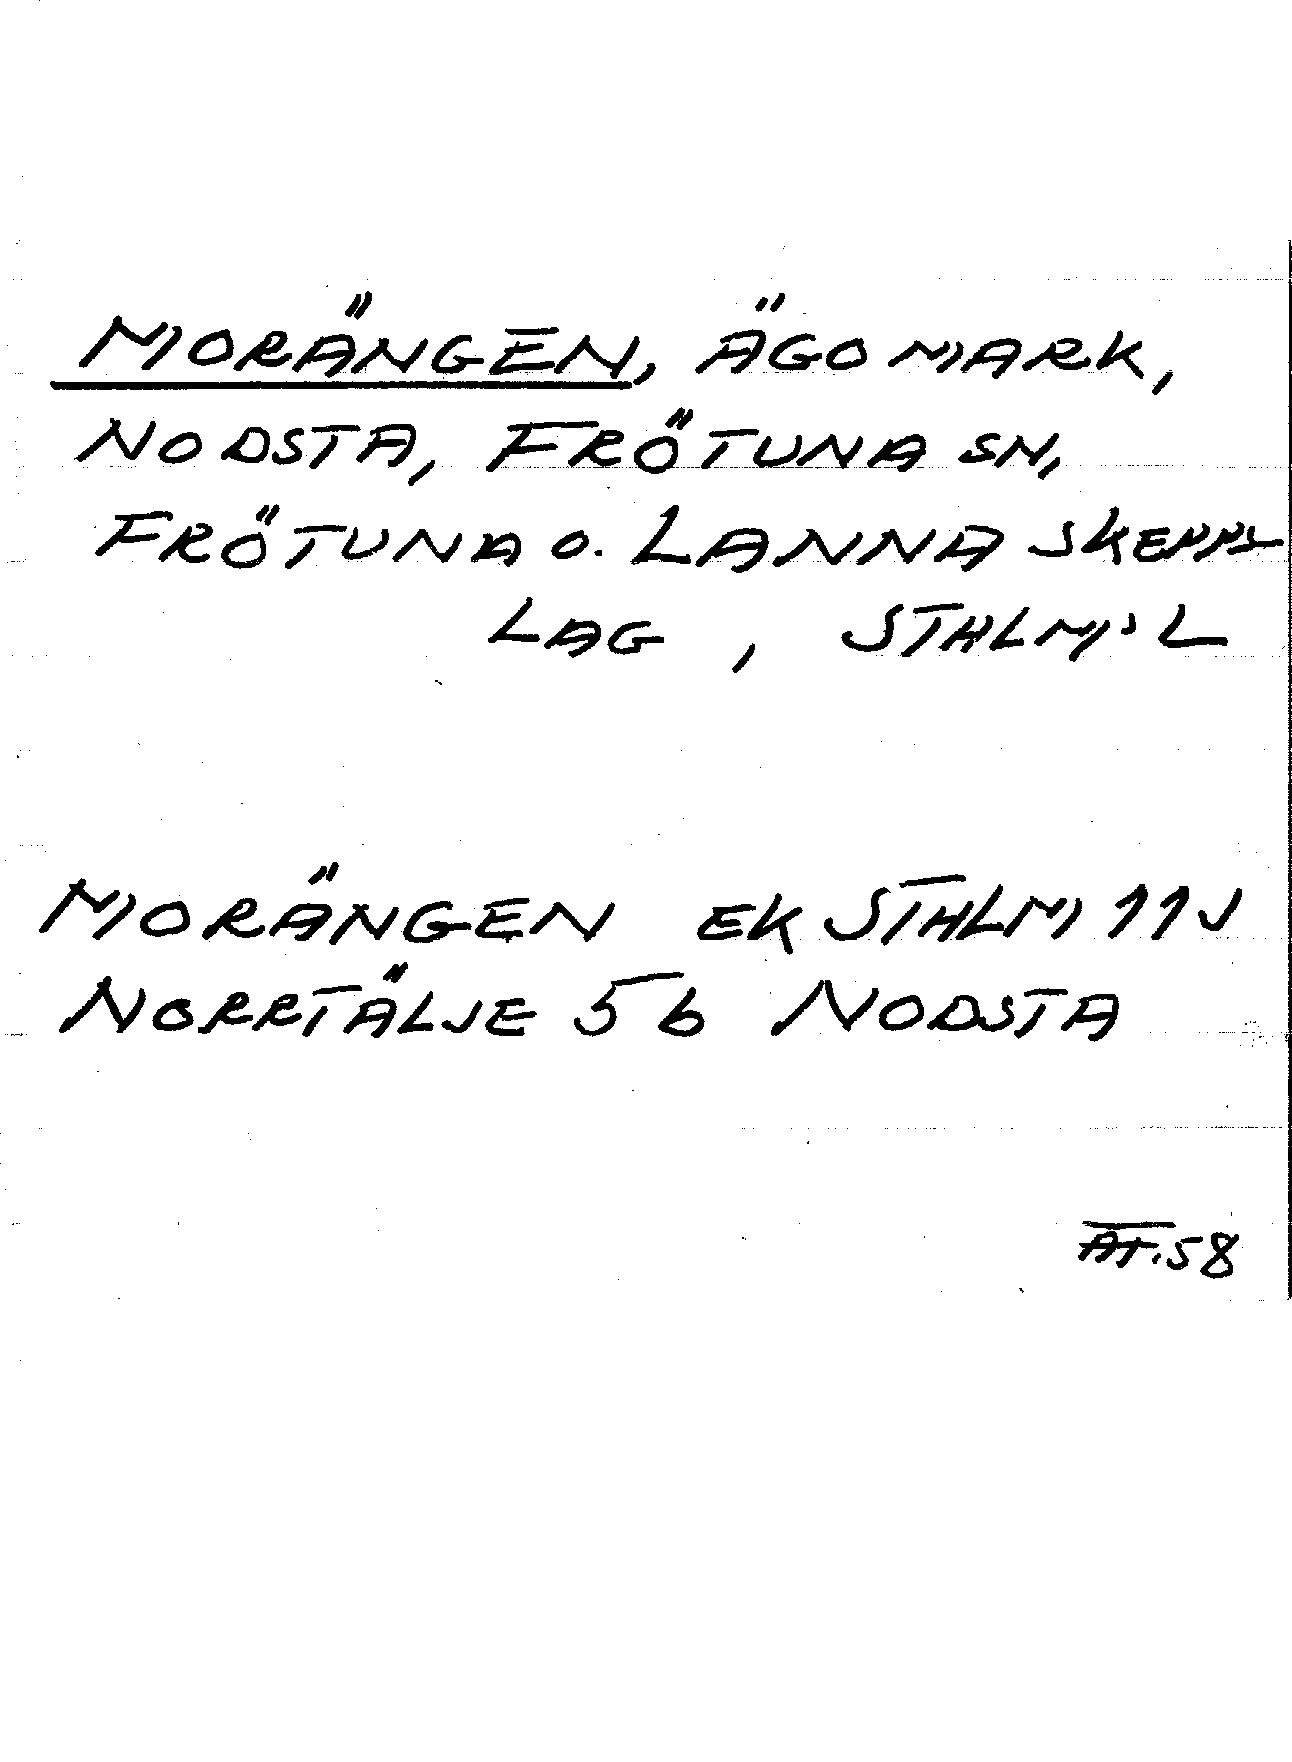 MORÄNGEN, ÄGOMARK,
NODSTA, FRÖTUNA SN,
FRÖTUNA O. LANNA SKEPPS
LAG, STHLM'S L
MORÄNGEN EK STHLM 11J
NORRTÄLJE 5b NODSTA
AT.58